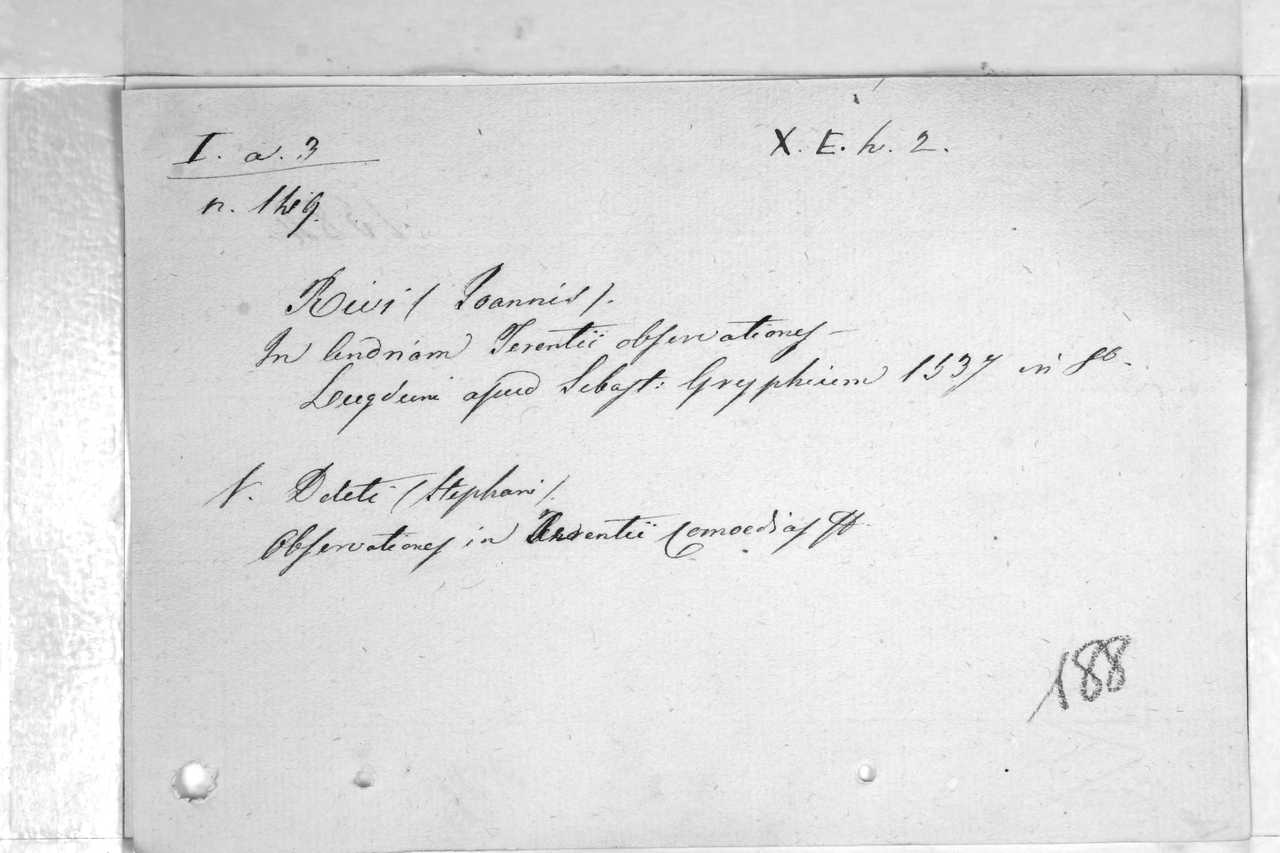 I. a. 3
X. E. h. 2.
n.
Rivi (Joannis).
In Andriam Terentii observationes
Lugduni apud Sebast: Gryphium 1537 in 8o.
V. Doleti (Stephani).
Observationes in Terentii Comoedias
188